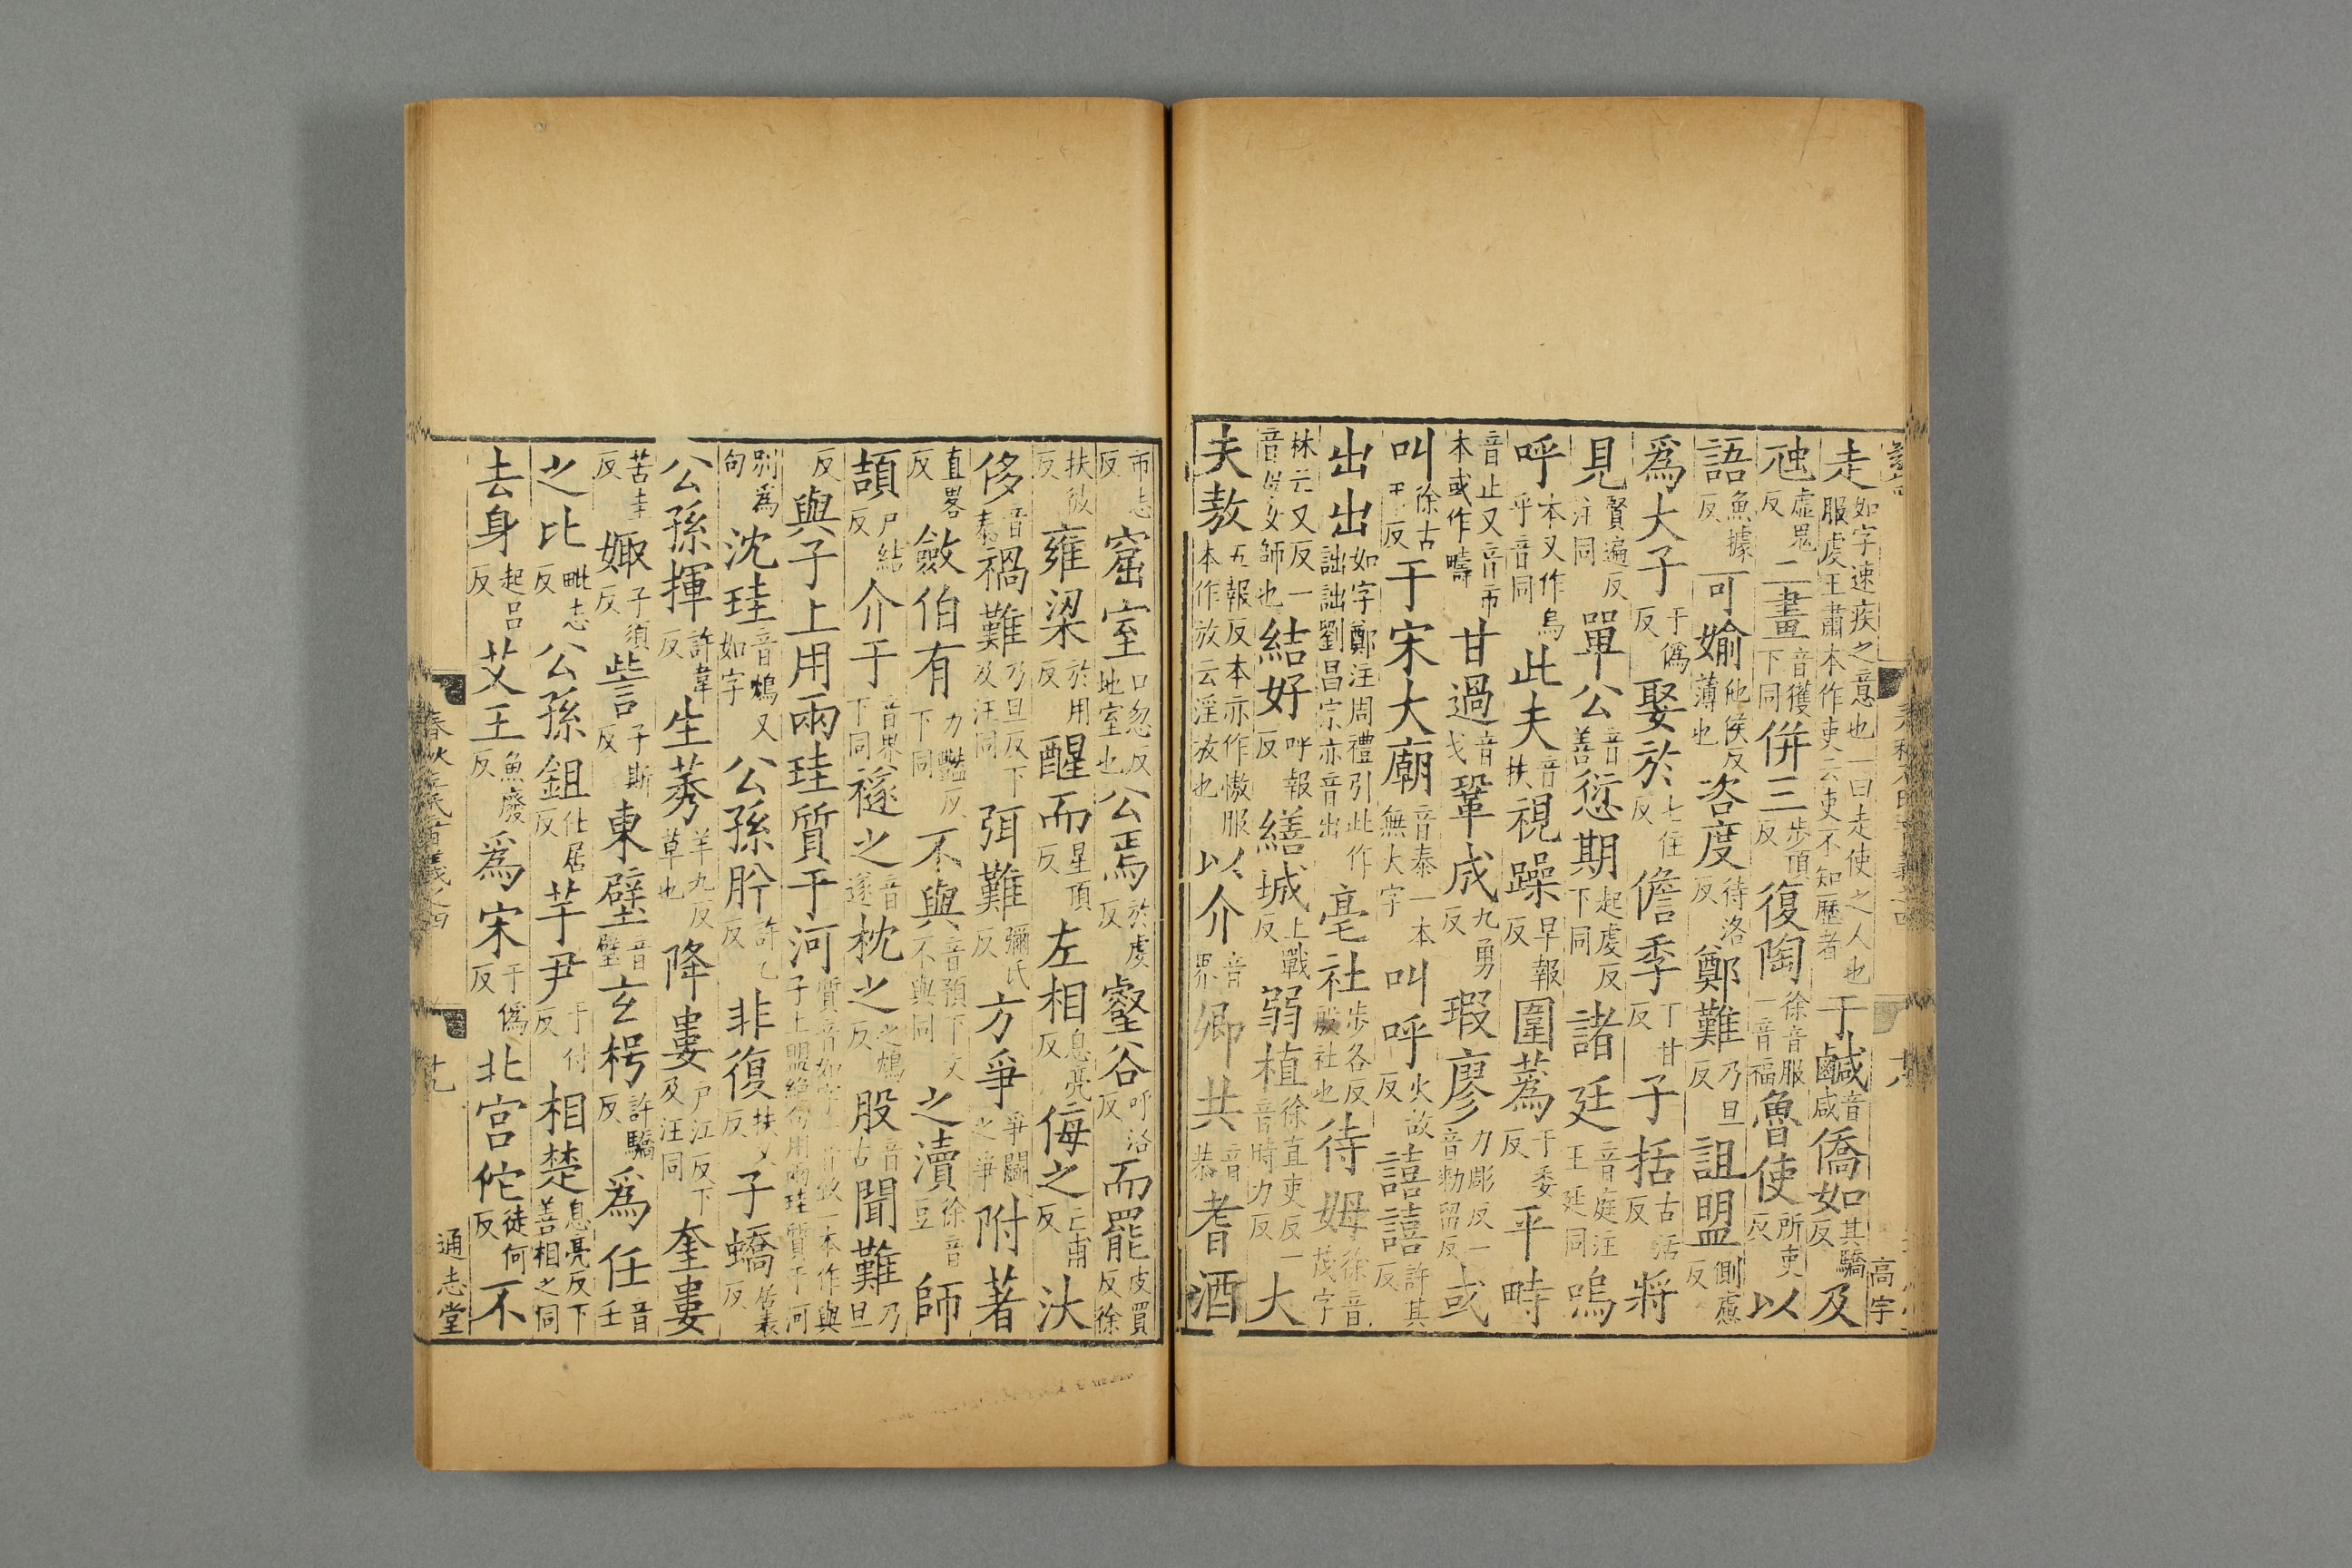 走如字速疾之意也一曰走使之人也服虔王肅本作吏云吏不知歷者于鹹音咸僑如其驕反及
虺虛鬼反二畫音獲下同併三步頂反復陶徐音服一音福魯使所吏反以
語魚據反可媮他侯反薄也咨度待洛反鄭難乃旦反詛盟側慮反
爲大子于僞反娶於七住反儋季丁甘反子括古活反將
見賢遍反注同單公音善愆期起虔反下同諸廷音庭注王廷同嗚
呼本又作烏乎音同此夫音扶視躁早報反圍蒍于委反平畤
音止又音市本或作疇甘過音戈鞏成九勇反瑕廖力彫反一音勑留反或
叫徐古弔反于宋大廟音泰一本無大字叫呼火故反譆譆許其反
出出如字鄭注周禮引此作詘詘劉昌宗亦音出亳社步各反殷社也待姆徐音茂字
林云又反一音母女師也結好呼報反繕城上戰反弱植徐直吏反一音時力反大
夫敖五報反本亦作憿服本作放云淫放也以介音界卿共音恭耆酒
市志反窟室口忽反地室也公焉於虔反壑谷呼洛反而罷皮買反徐
扶彼反雍梁於用反醒而星頂反左相息亮反侮之亡甫反汏
侈音泰禍難乃旦反下及注同弭難彌氏反方爭爭鬭之爭附著
直畧反斂伯有力豔反下同不與音預下文不與同之瀆徐音豆師
頡尸結反介于音界下同襚之音遂枕之之鴆反股音古聞難乃旦
反與子上用兩珪質于河質音如字一音致一本作與子上盟絕句用兩珪質于河
別爲句沈珪音鴆又如字公孫肸許乙反非復扶又反子蟜居表反
公孫揮許韋反生莠羊九反草也降婁户江反下及注同奎婁
苦圭反娵子須反訾子斯反東壁音壁玄枵許驕反爲任音壬
之比毗志反公孫鉏仕居反芋尹于付反相楚息亮反下善相之同
去身起吕反艾王魚廢反爲宋于僞反北宫佗徒何反不
春秋左氏音義之四 十九 通志堂